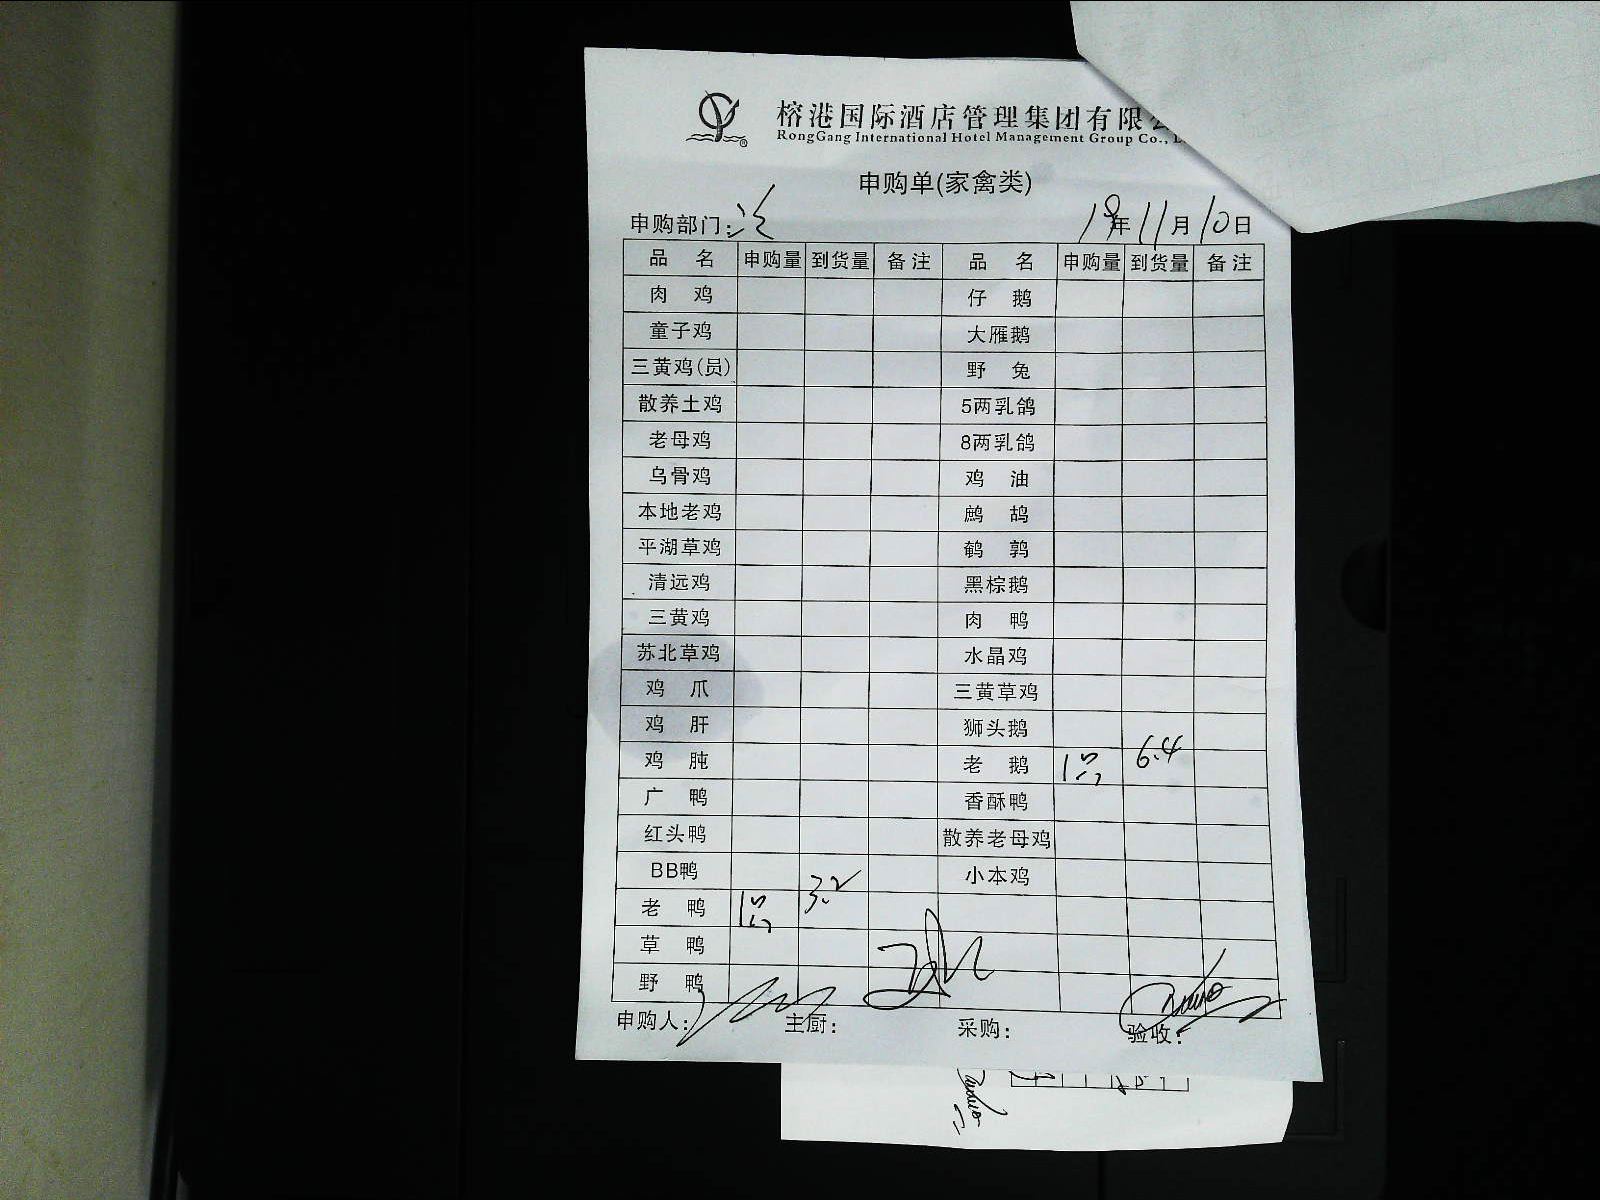 榕港国际酒店管理集团有限
RongGang International Hotel Management Group Co.,
申购单(家禽类)
申购部门: 19年11月10日
品名 申购量 到货量 备注 品名 申购量 到货量 备注
肉鸡 仔鹅
童子鸡 大雁鹅
三黄鸡(员) 野兔
散养土鸡 5两乳鸽
老母鸡 8两乳鸽
乌骨鸡 鸡油
本地老鸡 鹧鸪
平湖草鸡 鹌鹑
清远鸡 黑棕鹅
三黄鸡 肉鸭
苏北草鸡 水晶鸡
鸡爪 三黄草鸡
鸡肝 狮头鹅
鸡肫 老鹅 1只 6.4
广鸭 香酥鸭
红头鸭 散养老母鸡
BB鸭 小本鸡
老鸭 1只 3.2
草鸭
野鸭
申购人: 主厨: 采购: 验收: